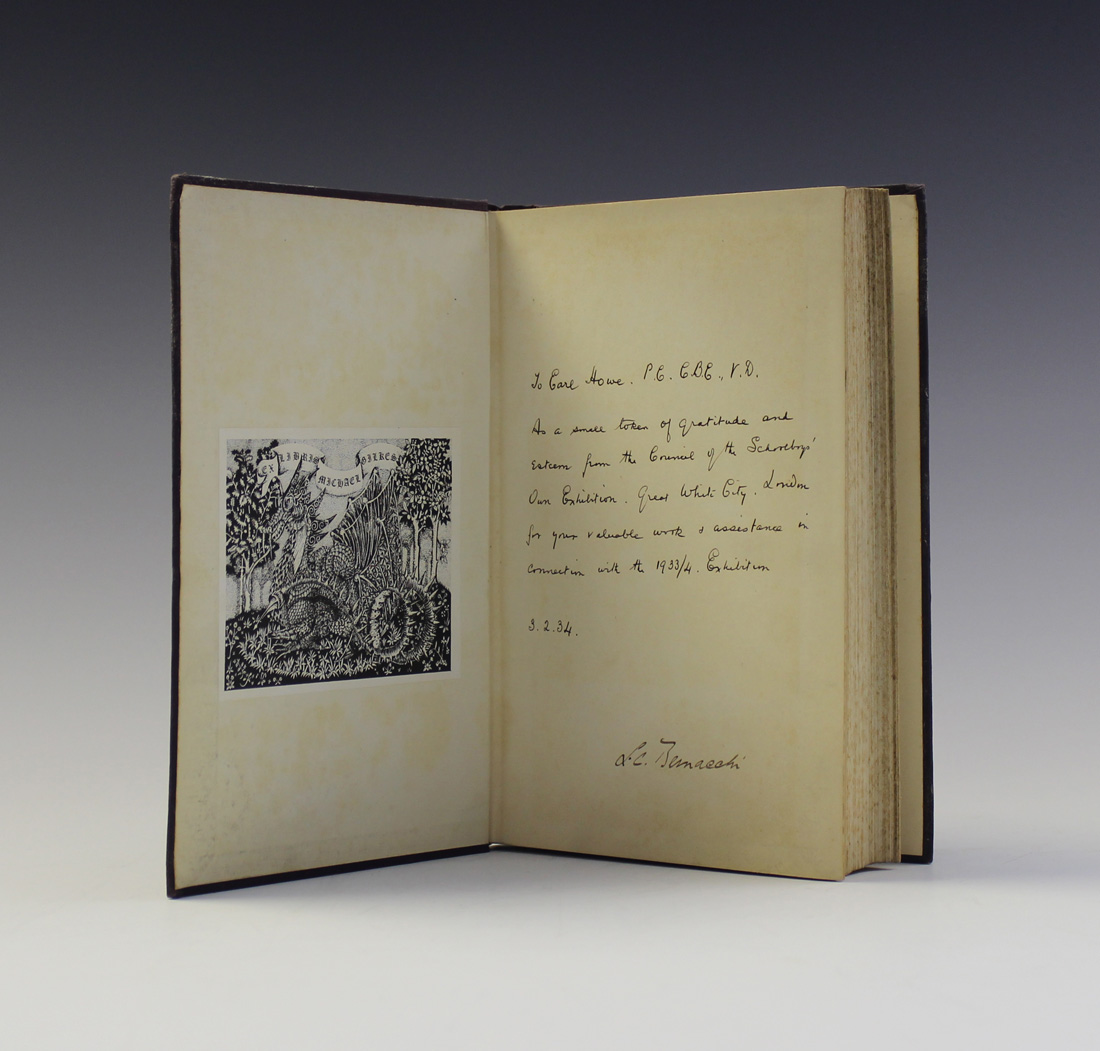 EX LIBRIS MICHAEL GILKES
To Earl Howe. P.C. C.B.E., V.D.
As a small token of gratitude and
esteem from the Council of the Schoolboys'
Own Exhibition. Great White City. London
for your valuable work & assistance in
connection with the 1933/4. Exhibition
3.2.34.
L.C. Bernacchi